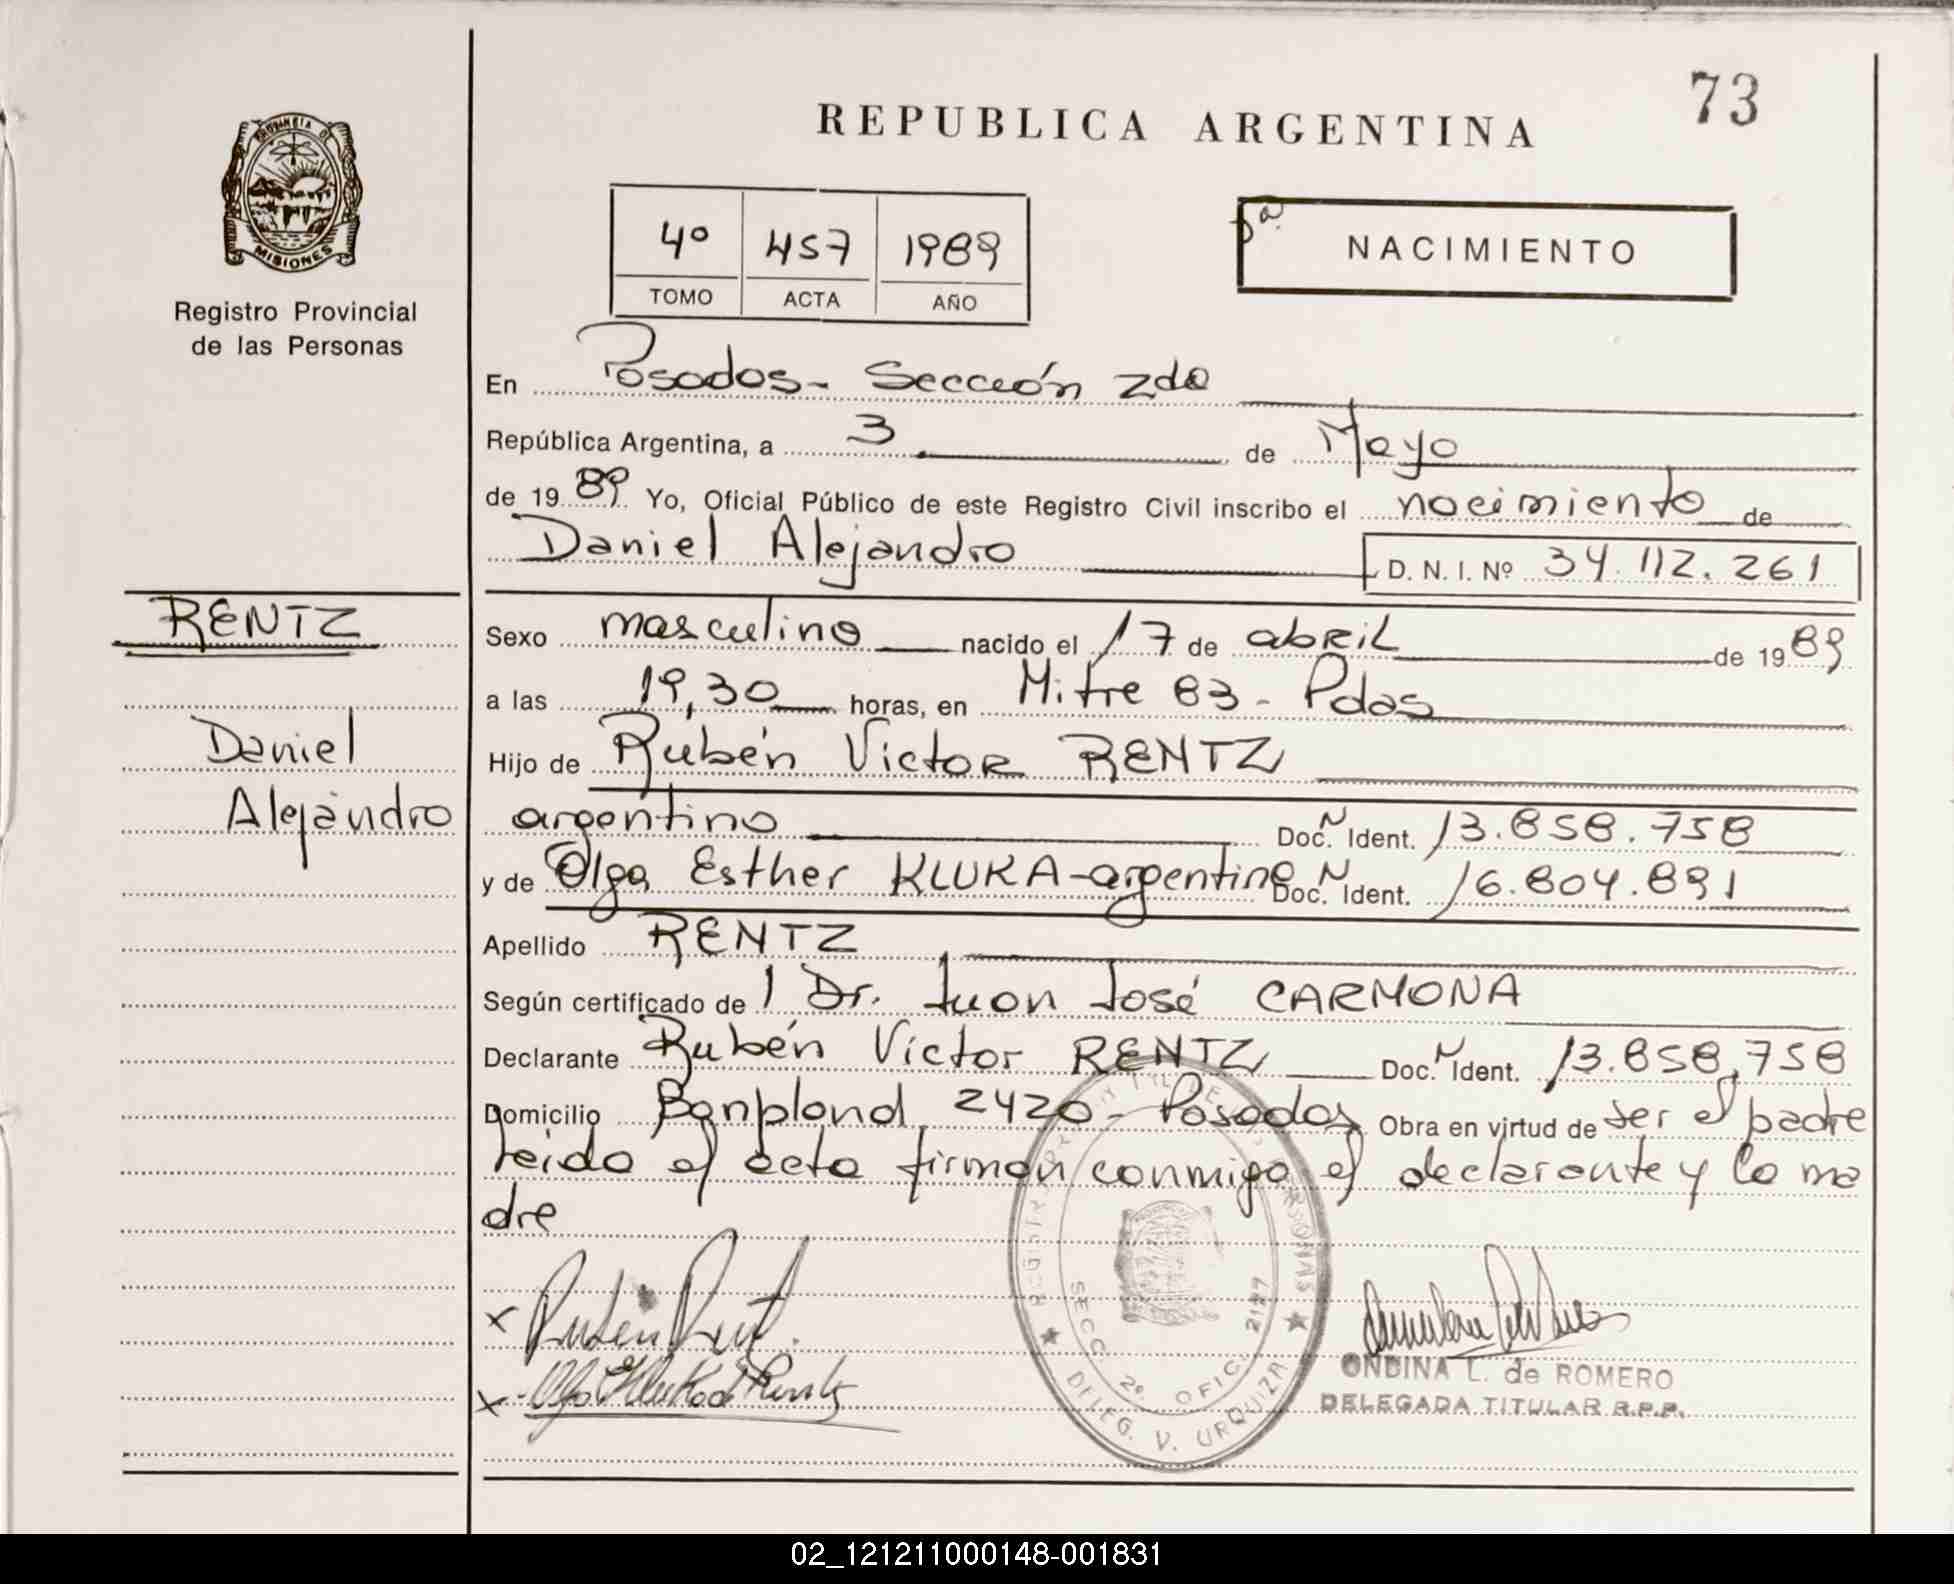 73
REPUBLICA ARGENTINA
PROVINCIA DE
MISIONES
Registro Provincial
de las Personas
4º 457 1989
TOMO ACTA AÑO
pª.
NACIMIENTO
En Posadas - Sección 2da
República Argentina, a 3 de Mayo
de 1989 Yo, Oficial Público de este Registro Civil inscribo el nacimiento de
Daniel Alejandro D. N. I. Nº 34.112.261
RENTZ
Daniel
Alejandro
Sexo masculino nacido el 17 de abril de 1989
a las 19,30 horas, en Mitre 83 - Pdas
Hijo de Rubén Victor RENTZ
argentino Doc. N Ident. 13.858.758
y de Olga Esther KLUKA - argentina Doc. N Ident. 16.804.891
Apellido RENTZ
Según certificado de l Dr. Juan José CARMONA
Declarante Rubén Victor RENTZ Doc. N Ident. 13.858.758
Domicilio Bonpland 2420 - Posadas Obra en virtud de ser el padre
leida el acta firman conmigo el declarante y la ma
dre
x Rubén Rentz
x
REGISTRO PROVINCIAL DE LAS PERSONAS
SECC. 2º. OFIC. 2127
DELEG. V. URQUIZA
ONDINA L. de ROMERO
DELEGADA TITULAR R.P.P.
02_121211000148-001831